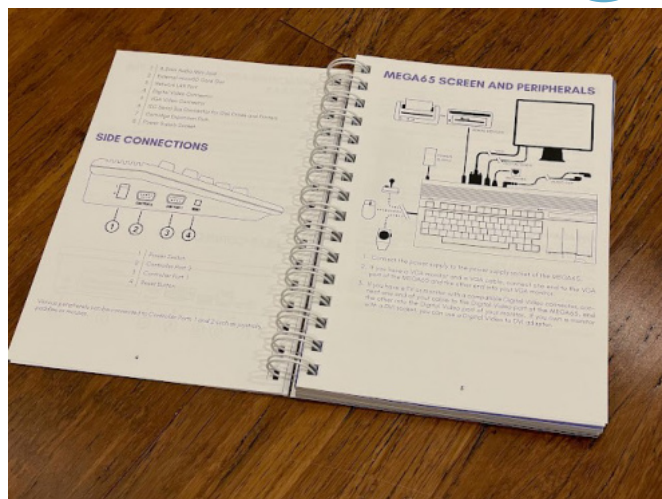 1 3.5mm Audio Mini-Jack
2 External microSD Card Slot
3 Network LAN Port
4 Digital Video Connector
5 VGA Video Connector
6 IEC Serial Bus Connector for Disk Drives and Printers
7 Cartridge Expansion Port
8 Power Supply Socket
SIDE CONNECTIONS
1 2 3 4
1 Power Switch
2 Controller Port 2
3 Controller Port 1
4 Reset Button
Various peripherals can be connected to Controller Ports 1 and 2 such as joysticks,
paddles or mouses.
4
MEGA65 SCREEN AND PERIPHERALS
1. Connect the power supply to the power supply socket of the MEGA65.
2. If you have a VGA monitor and a VGA cable, connect one end to the VGA
port of the MEGA65 and the other end into your VGA monitor.
3. If you have a TV or monitor with a compatible Digital Video connector, con-
nect one end of your cable to the Digital Video port of the MEGA65, and
the other into the Digital Video port of your monitor. If you own a monitor
with a DVI socket, you can use a Digital Video to DVI adapter.
5